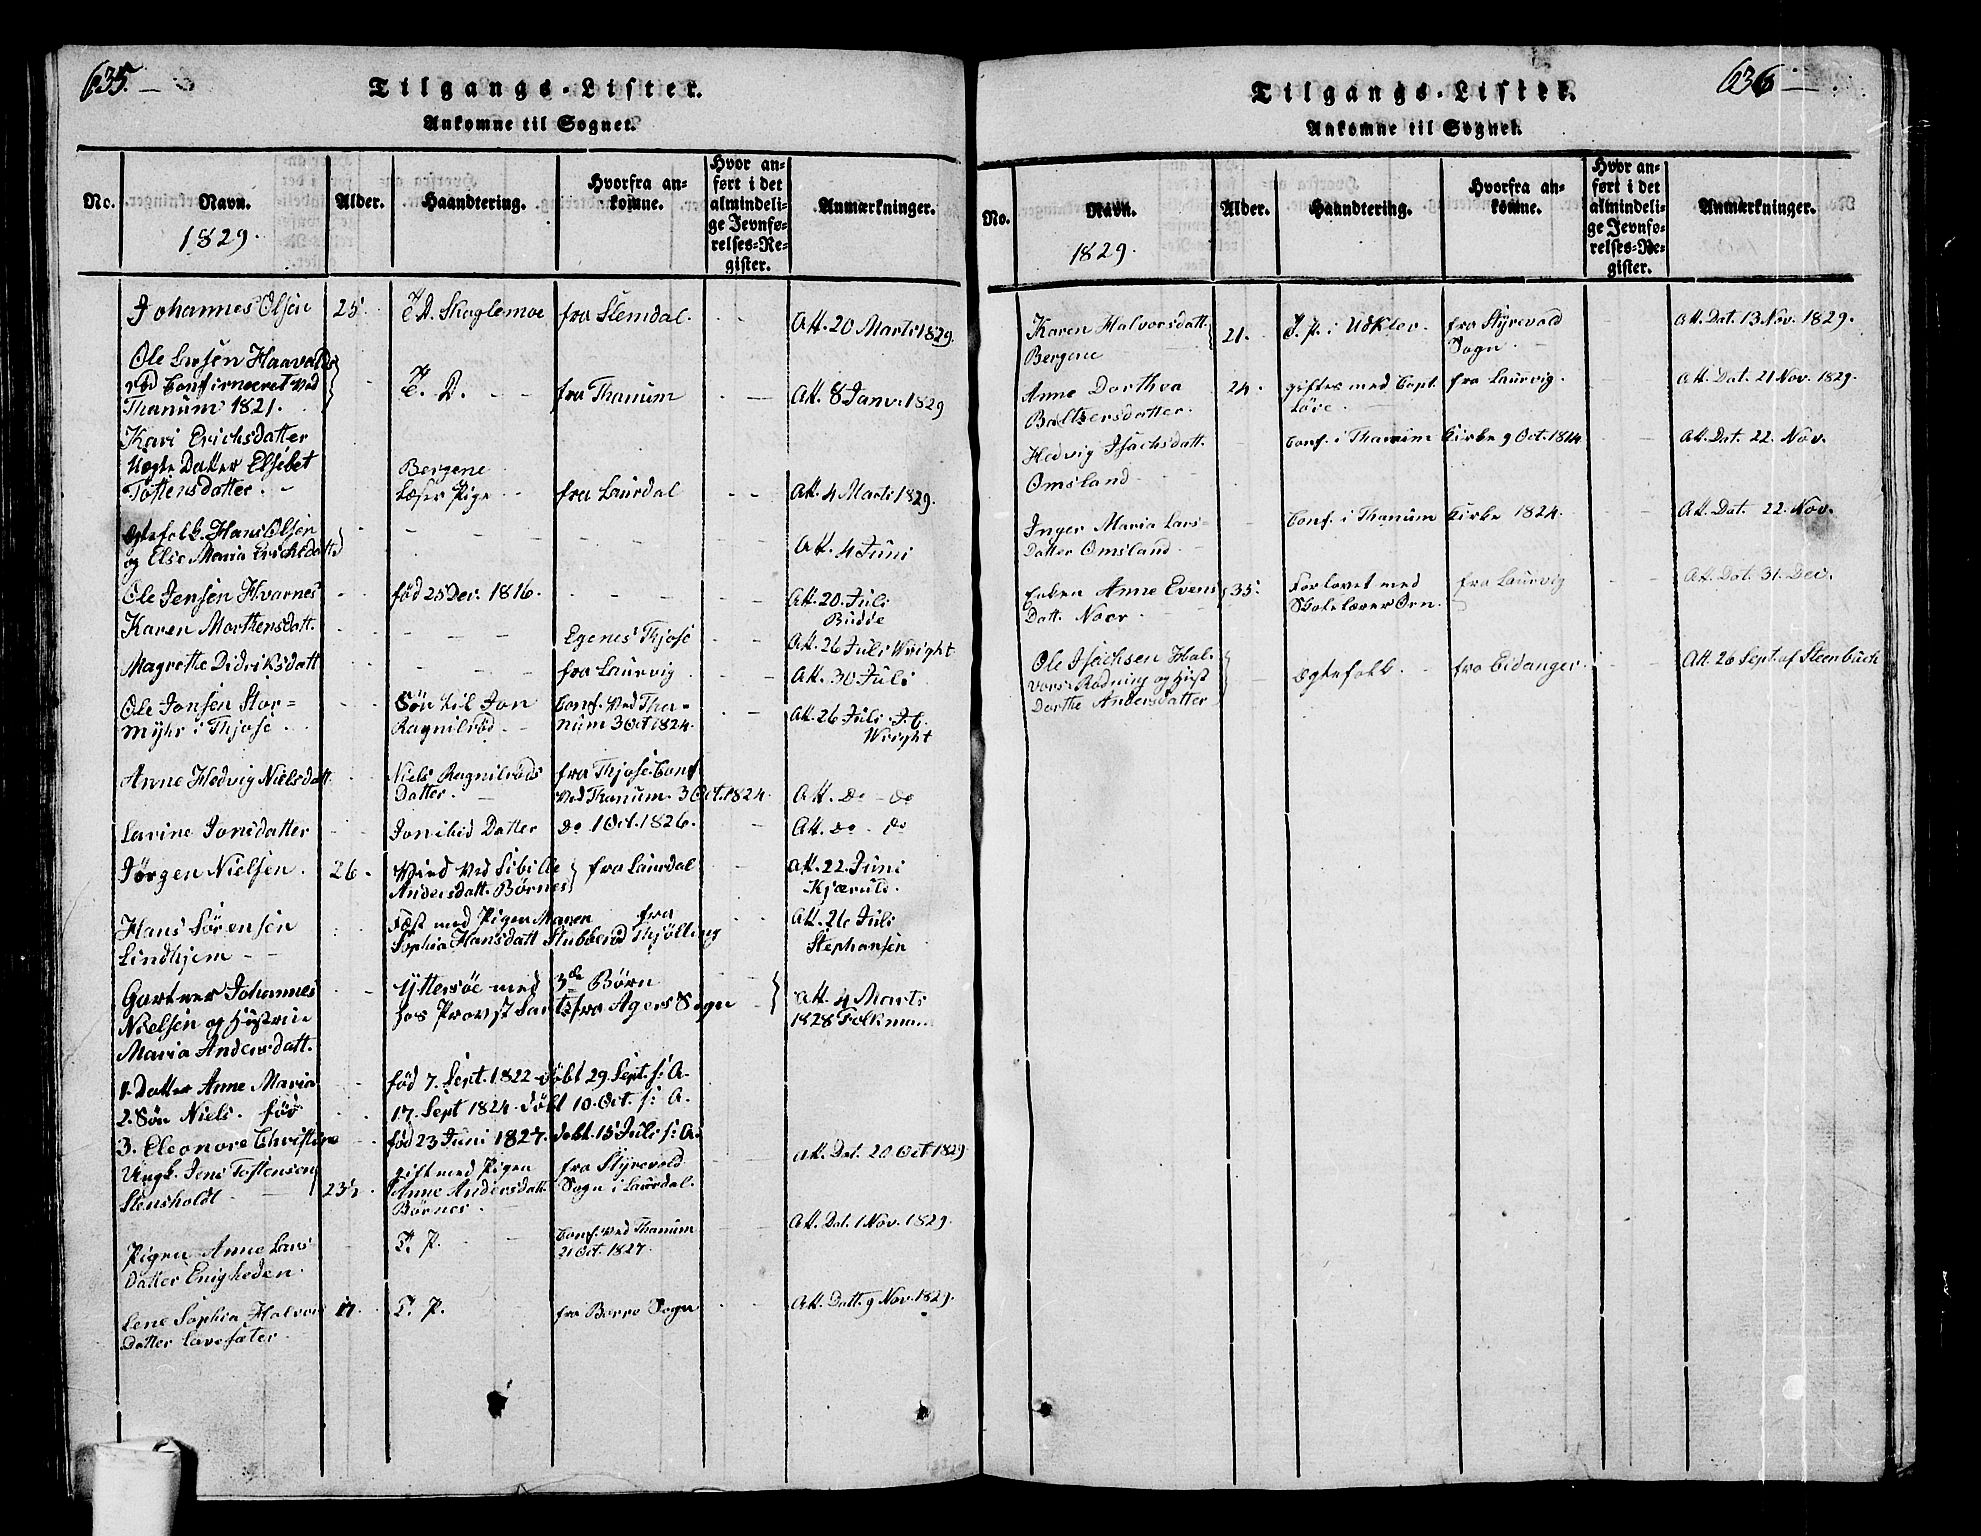 635.
Tilgangs-Lister.
Ankomne til Sognet.
No. Navn. Alder. Haandtering. Hvorfra ankomne. Hvor anført i det almindelige Jevnførelses-Register. Anmærkninger.
1829.
Johannes Olsen 25. T. D. Skoglemoe fra Slemdal. Att. 20 Marti 1829.
Ole Haavalds
rød Confirmeret ved
Thanum 1821. T. D. fra Thanum Att. 8 Janv. 1829
Kari Erichsdatter
Uægte Datter Elsebet Bergene
Tostensdatter. Læser Pige fra Laurdal Att. 4 Marti 1829.
Egtefolk. Hans Olsen
og Else Maria Erichsdatter Att. 4 Juni
Ole Jensen Hvarnes født 25 Dec. 1816. Att. 20 Juli
Budde
Karen Morthensdatt. Egenes Thjose Att. 26 Juli Wright
Magrethe Didriksdatt fra Laurvig Att. 30 Juli
Ole Jonsen Stor= Søn til Jon Conf. ved Tha=
myhr i Thjose Ragnilrød num 3 Oct 1824. Att. 26 Juli J. C.
Wright
Anne Hedvig Nielsdatt. Niels Ragnilrøds fra Thjose Conf
Datter. ved Thanum. 3 Oct. 1824. Att. do - do
Larine Jonsdatter Datter do 1 Oct. 1826. Att. do - do
Jørgen Nielsen. 26. viet ved Sibille fra Laurdal Att. 22 Juni
Andersdatt. Børnes Kjæruld.
Hans Sørensen Fæst med Pigen Maren fra Att. 26 Juli
Lindhjem Sophia Hansdatt Stubberød Thjølling Stephansen
Gartner Johannes Yttersøe med 3de Børn
Nielsen og Hustrue hos Provst fra Agers Sogn Att. 4 Marts
1828 Folkman..
Maria Andersdatt.
1. Datter Anne Maria fød 7. Sept. 1822 døbt 29. Sept. s: A.
2. Søn Niels. fød 17. Sept 1824. døbt 10. Oct. s: A.
3. Eleonore Christine fød 23 Juni 1827. døbt. 15 Juli s: A.
Ungk. Jens Tostensen gift med Pigen fra Styrevold Att. Dat. 20 Oct 1829
Stensholdt 23½. Anne Andersdatt. Sogn i Laurdal.
Børnes.
Pigen Anne Lars T. P. Conf. ved Thanum Att. Dat. 1 Nov. 1829.
Datter Enigheden. 21 Oct. 1827.
Lene Sophia Halvors 17. T. P. fra Borre Sogn Att. Datt. 9 Nov. 1829.
Datter Lavesæter
636
Tilgangs-Lister.
Ankomne til Sognet.
No. Navn. Alder. Haandtering. Hvorfra ankomne. Hvor anført i det almindelige Jevnførelses-Register. Anmærkninger.
1829.
Karen Halvorsdatt. 21. T. P. i Udklev. fra Styrevold Att. Dat. 13 Nov. 1829.
Bergene Sogn
Anne Dorthea 24. giftes med Capt. fra Laurvig. Att. Dat. 21 Nov. 1829.
Baltzersdatter. Love.
Hedvig Isachsdatt. Conf. i Thanum Kirke 9 Oct. 1814 Att. Dat. 22. Nov.
Omsland
Inger Maria Lars- Conf. i Thanum Kirke 1824. Att. Dat. 22. Nov.
Datter Omsland.
Enken Anne Evens 35. Forlovet med fra Laurvig Att. Dat. 31. Dec.
Datt. Noer. Skolelærer Orn.
Ole Isachsen Hal-
vors-Rødning og Hust Egtefolk fra Eidanger. Att. 26 Sept. af Steenbuch
Dorthe Andersdatter